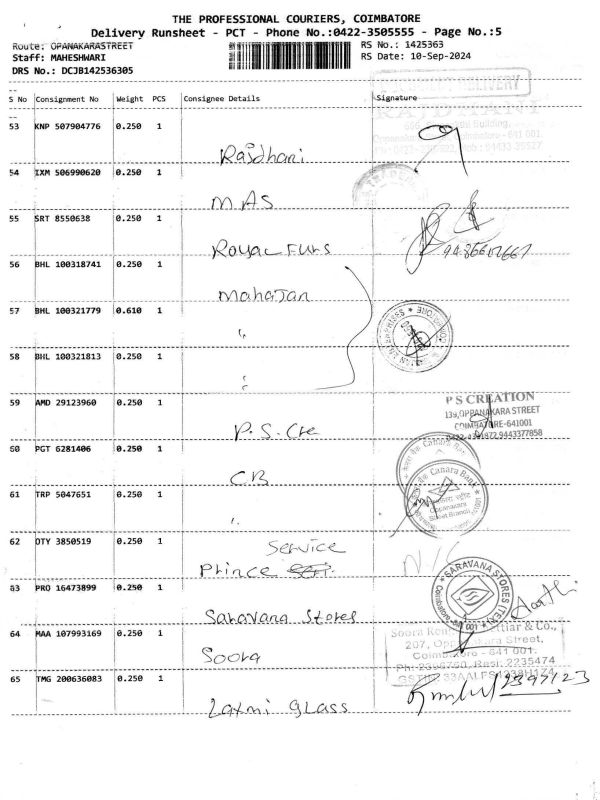 THE PROFESSIONAL COURIERS, COIMBATORE
Delivery Runsheet - PCT - Phone No.:0422-3505555 - Page No.:5
Route: OPANAKARASTREET
RS No.: 1425363
Staff: MAHESHWARI
RS Date: 10-Sep-2024
DRS No.: DCJB142536305
S No Consignment No Weight PCS Consignee Details Signature
53 KNP 507904776 0.250 1
Rajdhani
54 IXM 506990620 0.250 1
MAS
55 SRT 8550638 0.250 1
Royal Furs
9486612667
56 BHL 100318741 0.250 1
Mahajan
57 BHL 100321779 0.610 1
"
58 BHL 100321813 0.250 1
"
59 AMD 29123960 0.250 1
P S CREATION
139, OPPANAKARA STREET
COIMBATORE-641001
P.S. Cre
60 PGT 6281406 0.250 1
CB
Canara Bank
61 TRP 5047651 0.250 1
"
Canara Bank
Oppanakara
Street Branch
62 OTY 3850519 0.250 1
Service
Prince
N/C
63 PRO 16473899 0.250 1
Saravana Stores
SARAVANA STORES (TEX)
Coimbatore-641 001
64 MAA 107993169 0.250 1
Soora
207, Oppanakara Street,
Coimbatore - 641 001.
65 TMG 200636083 0.250 1
Laxmi Glass
2397123